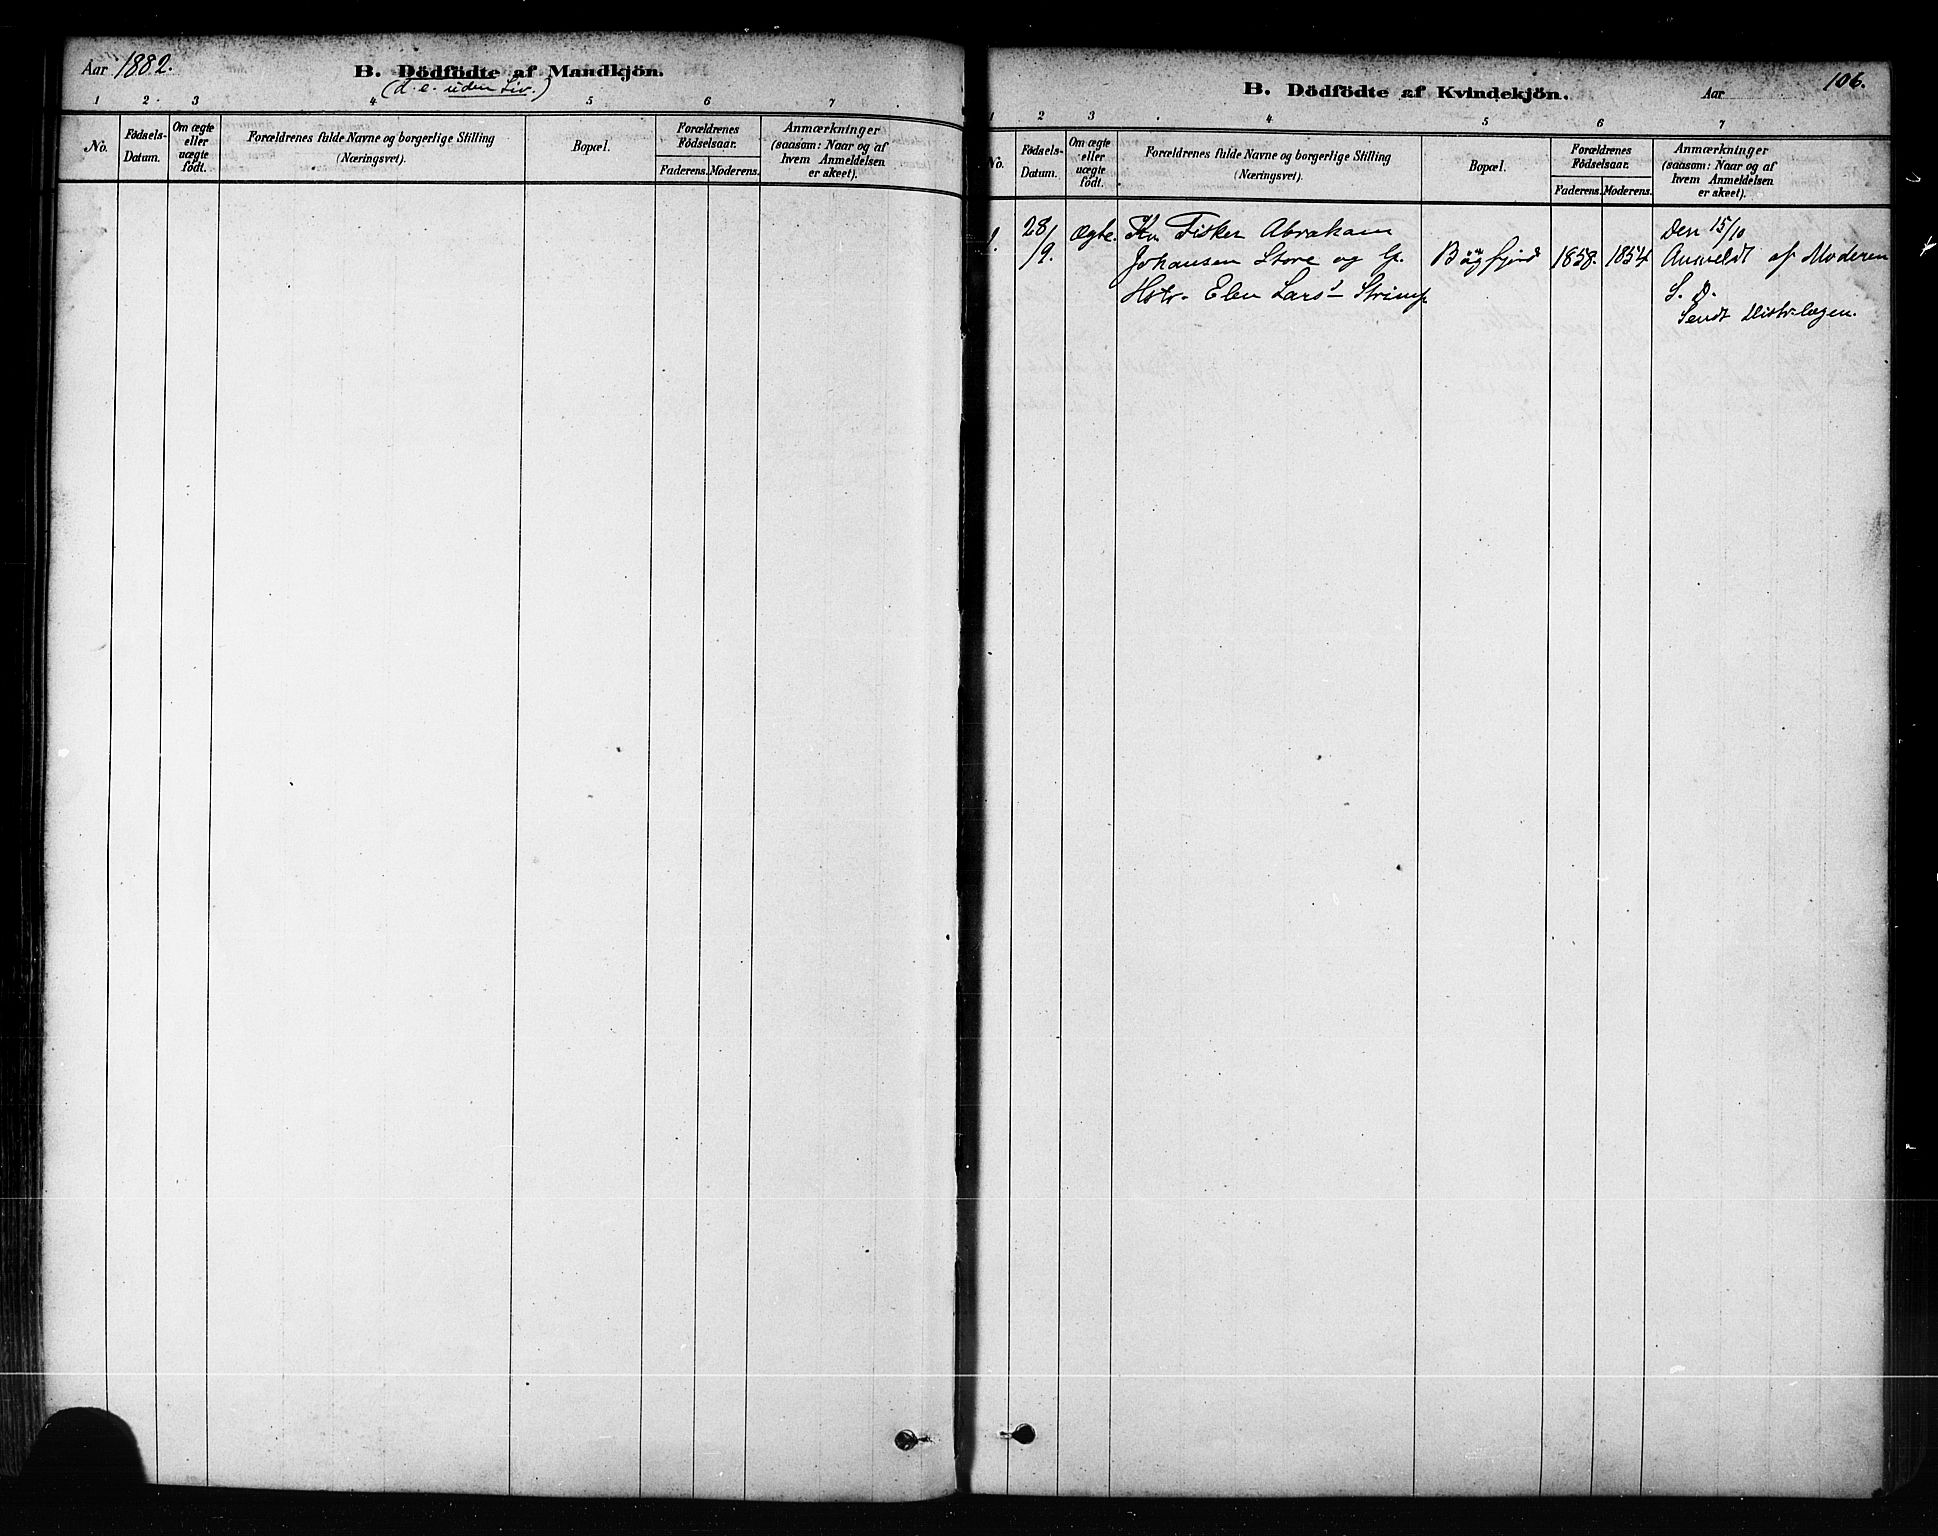 Aar 1882.
B. Dödfödte af Mandkjön.
(d. e. uden Liv.)
1 2 3 4 5 6 7
No.
Födsels-Datum.
Om ægte eller uægte födt.
Forældrenes fulde Navne og borgerlige Stilling (Næringsvei).
Bopæl.
Forældrenes Födselsaar.
Faderens. Moderens.
Anmærkninger (saasom: Naar og af hvem Anmeldelsen er skeet).
B. Dödfödte af Kvindekjön.
Aar
106.
1 2 3 4 5 6 7
No.
Födsels-Datum.
Om ægte eller uægte födt.
Forældrenes fulde Navne og borgerlige Stilling (Næringsvei).
Bopæl.
Forældrenes Födselsaar.
Faderens. Moderens.
Anmærkninger (saasom: Naar og af hvem Anmeldelsen er skeet).
1. 28/9. Ægte. Fisker Abraham
Johansen Store og
Hstr. Elen Lars
Bögfjord 1858. 1854
Den 15/10
Anmeldt af Moderen
S. D.
Sendt Distr.lægen.